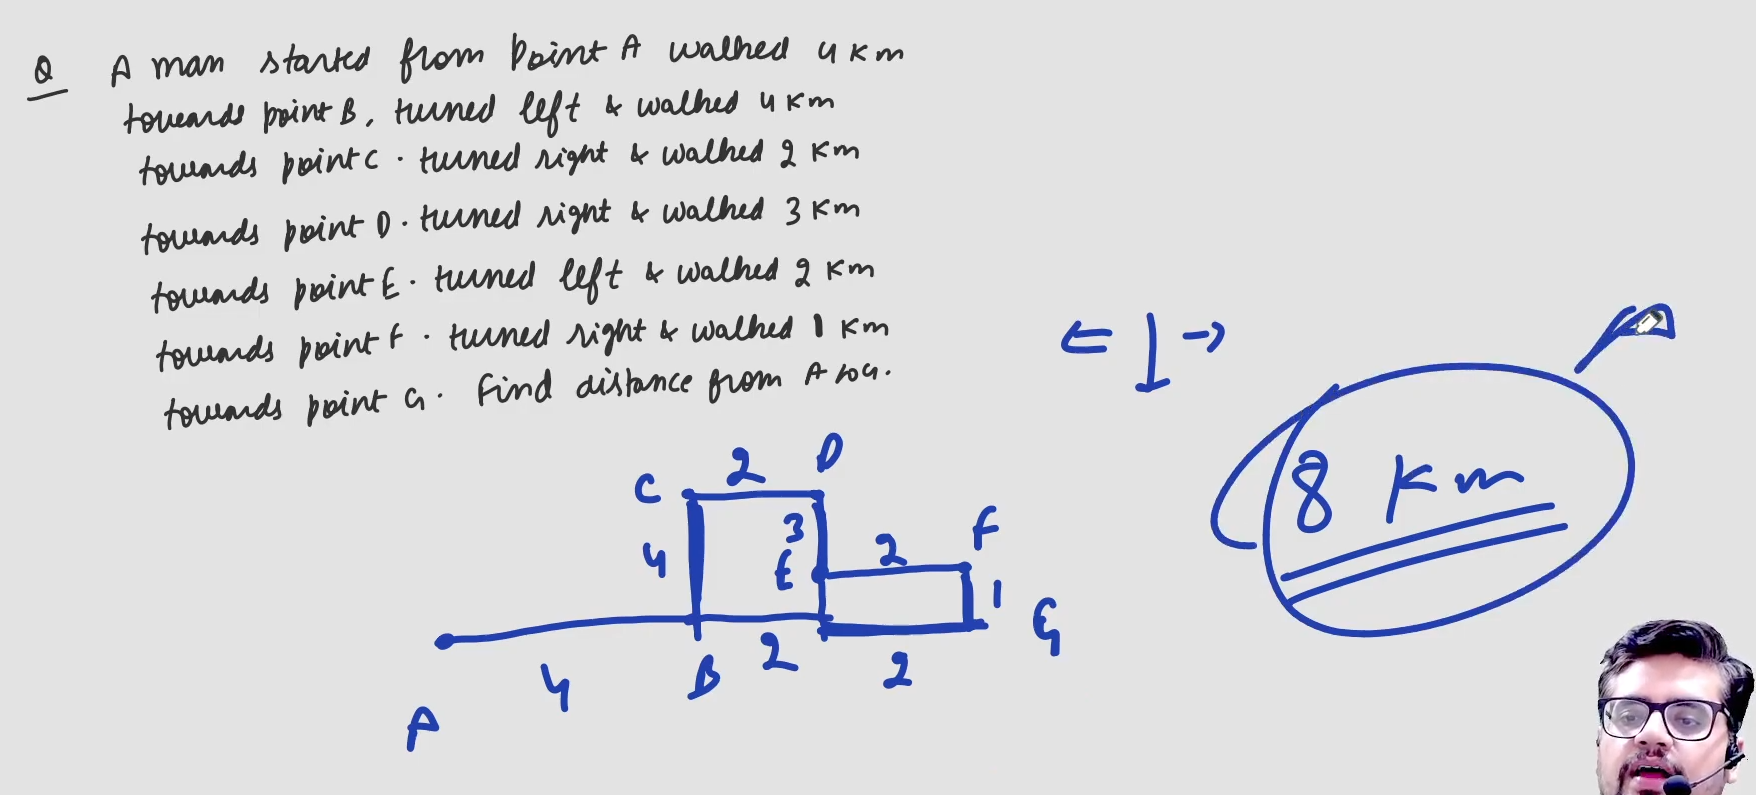 Q A man started from Point A walked 4 Km
towards point B, turned left & walked 4 Km
towards point C. turned right & walked 2 Km
towards point D. turned right & walked 3 Km
towards point E. turned left & walked 2 Km
towards point F. turned right & walked 1 Km
towards point G. Find distance from A to G.
← 1 →
8 Km
2 D
C
3 F
4 E 2
1 G
4 B 2 2
A